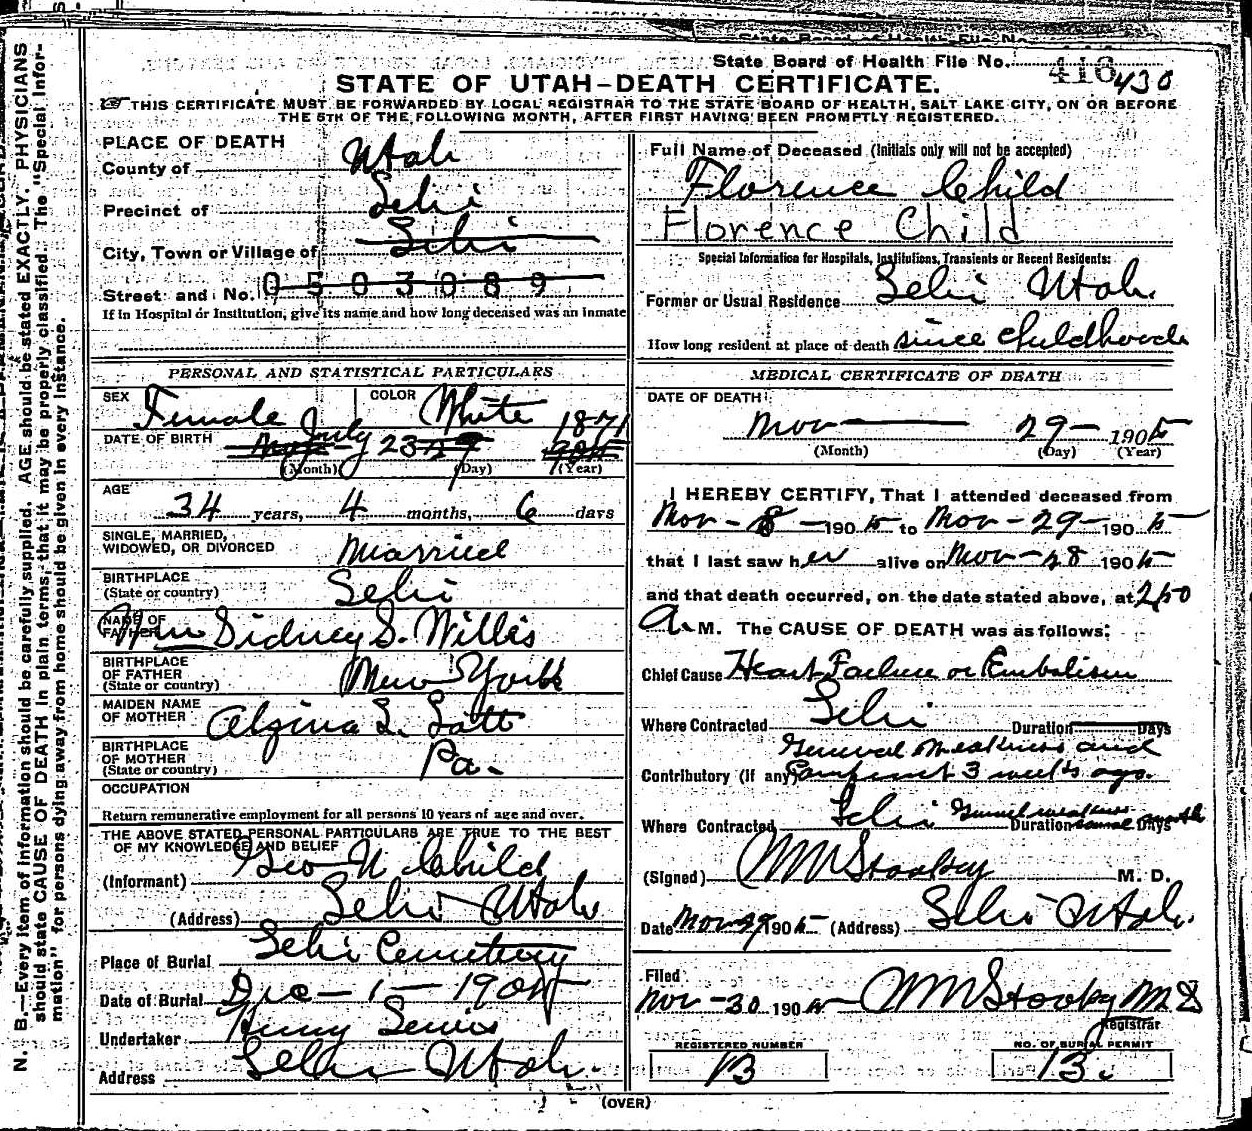 State Board of Health File No. 416 430
STATE OF UTAH-DEATH CERTIFICATE.
THIS CERTIFICATE MUST BE FORWARDED BY LOCAL REGISTRAR TO THE STATE BOARD OF HEALTH, SALT LAKE CITY, ON OR BEFORE
THE 5TH OF THE FOLLOWING MONTH, AFTER FIRST HAVING BEEN PROMPTLY REGISTERED.
N. B.—Every item of information should be carefully supplied. AGE should be stated EXACTLY. PHYSICIANS
should state CAUSE OF DEATH in plain terms, that it may be properly classified. The "Special Infor-
mation" for persons dying away from home should be given in every instance.
PLACE OF DEATH
County of Utah
Precinct of Lehi
City, Town or Village of Lehi
Street and No. 0503089
If in Hospital or Institution, give its name and how long deceased was an inmate
PERSONAL AND STATISTICAL PARTICULARS
SEX Female COLOR White
DATE OF BIRTH July 23 1871
(Month) (Day) (Year)
AGE
34 years, 4 months, 6 days
SINGLE, MARRIED,
WIDOWED, OR DIVORCED Married
BIRTHPLACE
(State or country) Lehi
NAME OF
FATHER Wm Sidney S. Willis
BIRTHPLACE
OF FATHER
(State or country) New York
MAIDEN NAME
OF MOTHER Alzina L. Lott
BIRTHPLACE
OF MOTHER
(State or country) Pa.
OCCUPATION
Return remunerative employment for all persons 10 years of age and over.
THE ABOVE STATED PERSONAL PARTICULARS ARE TRUE TO THE BEST
OF MY KNOWLEDGE AND BELIEF
(Informant) Geo N. Child
(Address) Lehi Utah
Place of Burial Lehi Cemetery
Date of Burial Dec - 1 - 1905
Undertaker Henry Lewis
Address Lehi Utah.
Full Name of Deceased (Initials only will not be accepted)
Florence Child
Florence Child
Special Information for Hospitals, Institutions, Transients or Recent Residents:
Former or Usual Residence Lehi Utah.
How long resident at place of death since childhood
MEDICAL CERTIFICATE OF DEATH
DATE OF DEATH
Nov 29 - 1905
(Month) (Day) (Year)
I HEREBY CERTIFY, That I attended deceased from
Nov - 8 - 1905 to Nov - 29 - 1905
that I last saw her alive on Nov - 28 1905
and that death occurred, on the date stated above, at 2:50
A. M. The CAUSE OF DEATH was as follows:
Chief Cause Heart Failure or Embolism
Where Contracted Lehi Duration Days
General Weakness and
Contributory (if any) Confinement 3 weeks ago.
Where Contracted Lehi General weakness
Duration several Days month
(Signed) WN Stookey M. D.
Date Nov 29 1905 (Address) Lehi Utah.
Filed
Nov - 30 1905 WN Stookey MD
Registrar
REGISTERED NUMBER NO. OF BURIAL PERMIT
13 13.
(OVER)